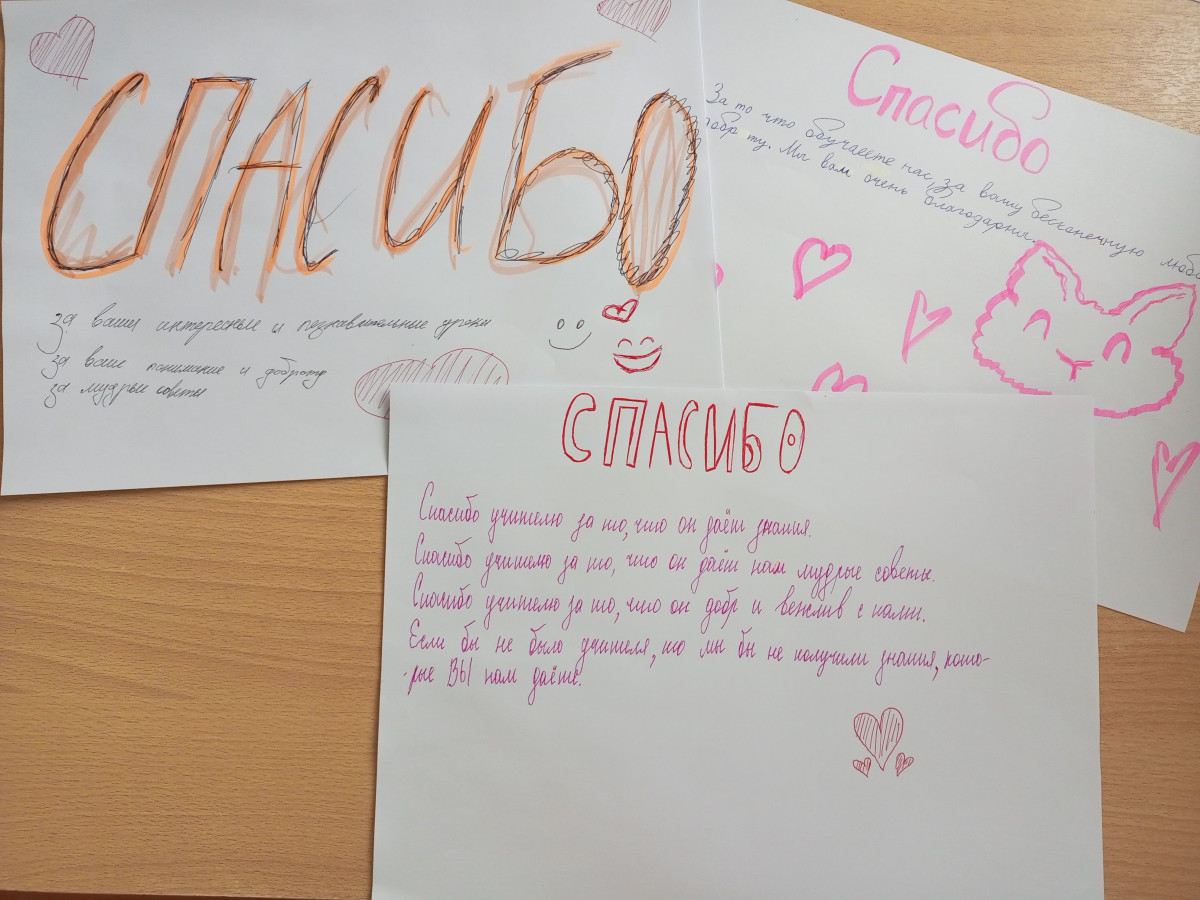 СПАСИБО
за ваши интересные и познавательные уроки
за ваше понимание и доброту
за мудрые советы
Спасибо
За то что обучаете нас, за вашу бесконечную
Мы вам очень благодарны.
СПАСИБО
Спасибо учителю за то, что он даёт знания.
Спасибо учителю за то, что он даёт нам мудрые советы.
Спасибо учителю за то, что он добр и вежлив с нами.
Если бы не было учителя, то мы бы не получили знания, кото-
-рые ВЫ нам даёте.